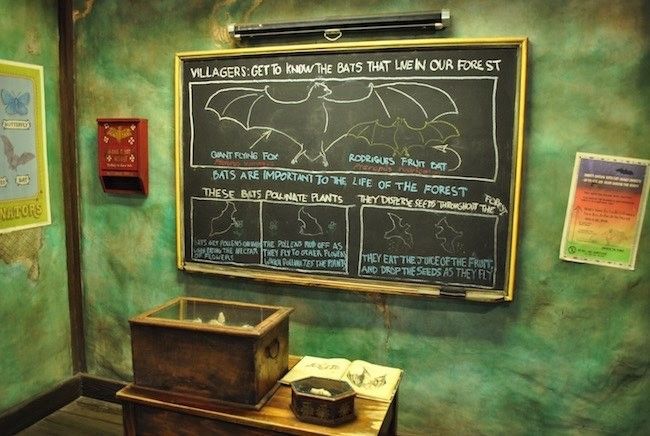 VILLAGERS: GET TO KNOW THE BATS THAT LIVE IN OUR FOREST
GIANT FLYING FOX
RODRIGUES FRUIT BAT
BATS ARE IMPORTANT TO THE LIFE OF THE FOREST
THESE BATS POLLINATE PLANTS
THEY DISPERSE SEEDS THROUGHOUT THE FOREST
BATS GET POLLEN ON THEM
WHEN EATING THE NECTAR
OF FLOWERS
THE POLLENS RUB OFF AS
THEY FLY TO OTHER FLOWERS
WHICH POLLINATES THE PLANTS
THEY EAT THE JUICE OF THE FRUIT,
AND DROP THE SEEDS AS THEY FLY
BUTTERFLY
BAT
NATORS